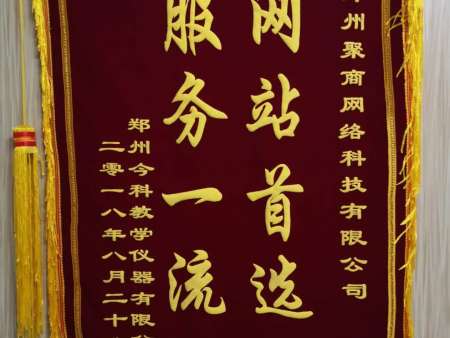 郑州聚商网络科技有限公司
网站首选
服务一流
郑州今科教学仪器有限公
二零一八年八月二十